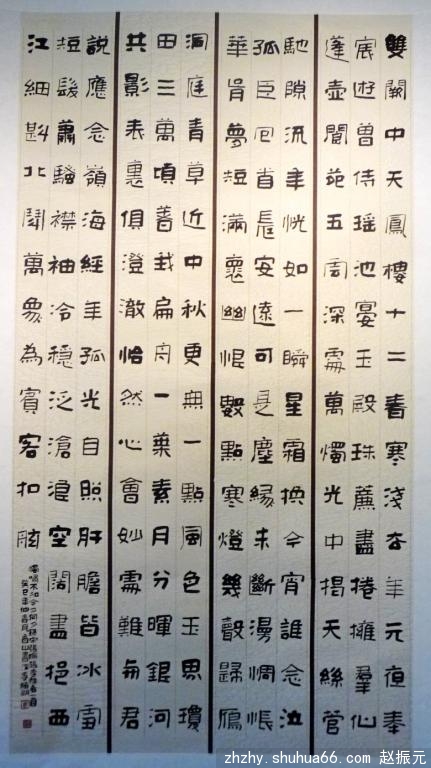 雙闕中天鳳樓十二春寒淺去年元夜奉
宸遊曾侍瑤池宴玉殿珠簾盡捲擁羣仙
蓬壺閬苑五雲深處萬燭光中揭天絲管
馳隙流年恍如一瞬星霜換今宵誰念泣
孤臣回首長安遠可是塵緣未斷漫惆悵
華胥夢短滿懷幽恨數點寒燈幾聲歸雁
洞庭青草近中秋更無一點風色玉界瓊
田三萬頃著我扁舟一葉素月分暉銀河
共影表裏俱澄澈怡然心會妙處難與君
說應念嶺海經年孤光自照肝膽皆冰雪
短髮蕭騷襟袖冷穩泛滄浪空闊盡挹西
江細斟北斗萬象為賓客扣舷
獨嘯不知今夕何夕錄宋張掄張孝祥詞二首
癸巳年仲春月
zhzhy.shuhua66.com 赵振元